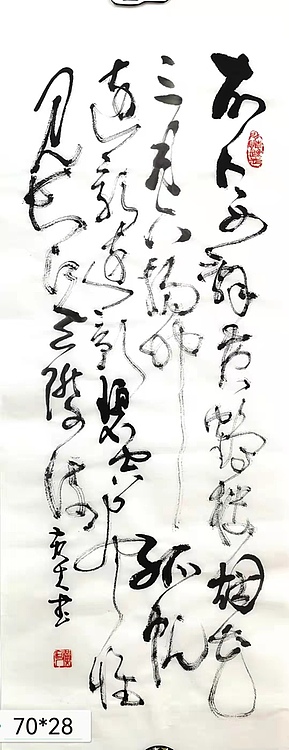 故人西辞黄鹤楼烟花
三月下扬州孤帆
远影远影碧空尽惟
见长江天际流
70*28